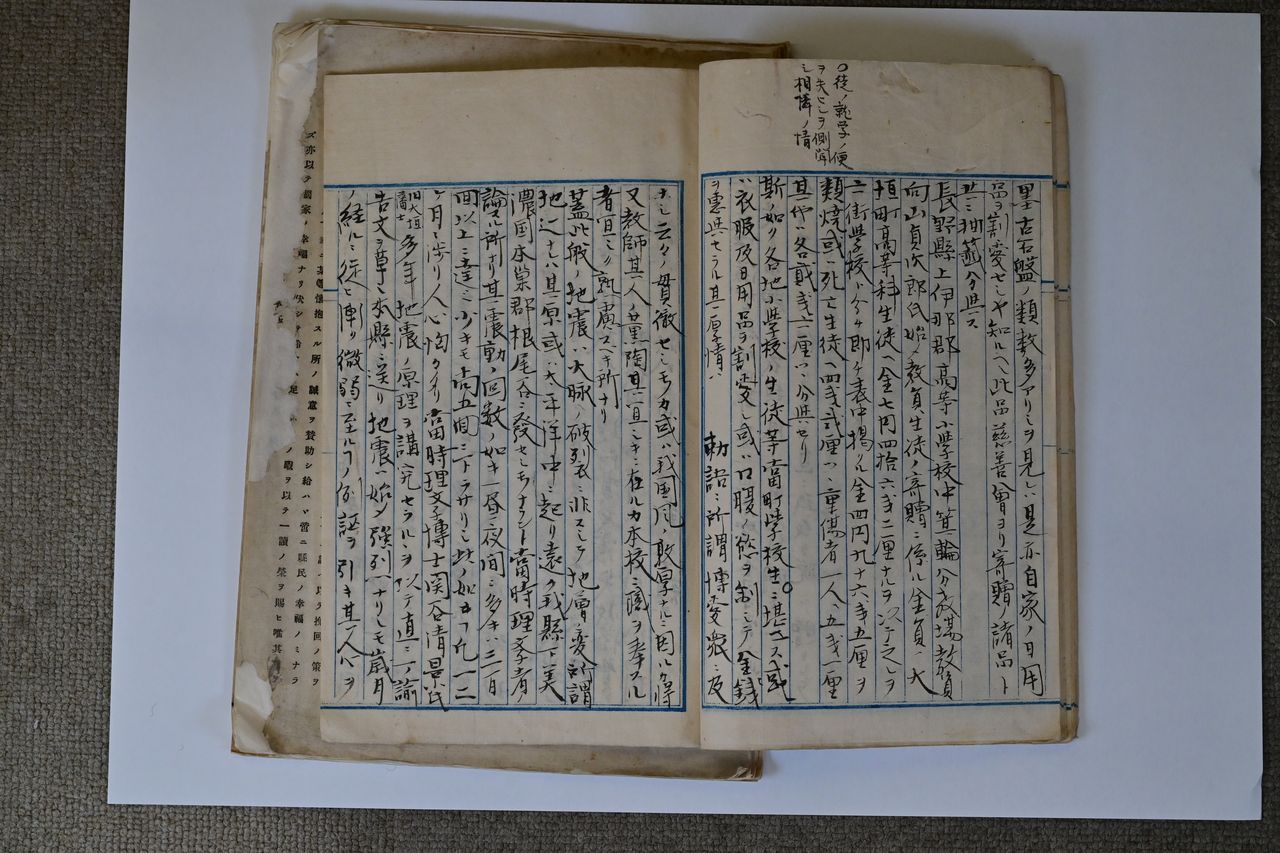 ○徒ノ就学ノ便
ヲ失ヒシヲ側聞
シ相憐ノ情
墨古石盤ノ類数多アリシヲ見レハ是亦自家ノ日用
品ヲ割愛セシヤ知ルヘシ此品慈善會ヨリ寄贈諸品ト
共ニ抽籤分与ス
長野縣上伊那郡高等小学校中箕輪分教場教員
向山貞次郎氏始メ教員生徒ノ寄贈ニ係ル金員ハ大
垣町高等科生徒ヘ金七円四拾六戔二厘ナルヲ以テ之レヲ
二街学校ニ分ケ即ケ表中掲クル金四円九十六戔五厘ヲ
類焼或ハ死亡生徒ヘ四戔弐厘ツヽ重傷者一人ヘ五戔一厘
其他ヘ各貳戔六厘ツヽ分与セリ
斯ノ如ク各地小学校ノ生徒等當町学校生○ニ堪エス或
ハ衣服及日用品ヲ割愛シ或ハ口腹ノ慾ヲ制シテ金銭
ヲ惠与セラル其厚情ハ 勅語ニ所謂博愛衆ニ及
ホシ云々ノ貫徹セシモノカ或ハ我国風敦厚ナルニ因ルカ将
又教師其人ノ薫陶其宜シキニ在ルカ本校ニ職ヲ奉スル
者宜シク熟慮スヘキ所ナリ
蓋此般ノ地震ハ大脉ノ破裂ニ非スシテ地層ノ変所謂
地辷ナレハ其原或ハ太平洋中ニ起リ遠ク我縣下美
濃国本巣郡根尾谷ニ發セシモノナラント當時理学者ノ
論スル所ナリ其震動ノ回数ノ如キ一昼夜間ニ多キハ三百
回以上ニ達シ少キモ尚五回ニ下ラサリシ此ノ如キコト凡一二
ケ月ニ渉リ人心恟々タリ當時理学博士関谷清景氏
旧大垣
藩士 多年地震ノ原理ヲ講究セラルヽヲ以テ直ニ一ノ諭
告文ヲ草シ本縣ニ送リ地震ハ始メ強烈ナリシモ歳月
ノ経ルニ従ヒ漸ク微弱ニ至ルコノ例証ヲ引キ其人心ヲ
懐抱スル所ノ誠意ヲ賛助シ給ハヽ啻ニ縣民ノ幸福ノミナラ
ズ亦以テ國家ノ幸福ナリ
ノ暇ヲ以テ一讀ノ榮ヲ賜ヒ惟其